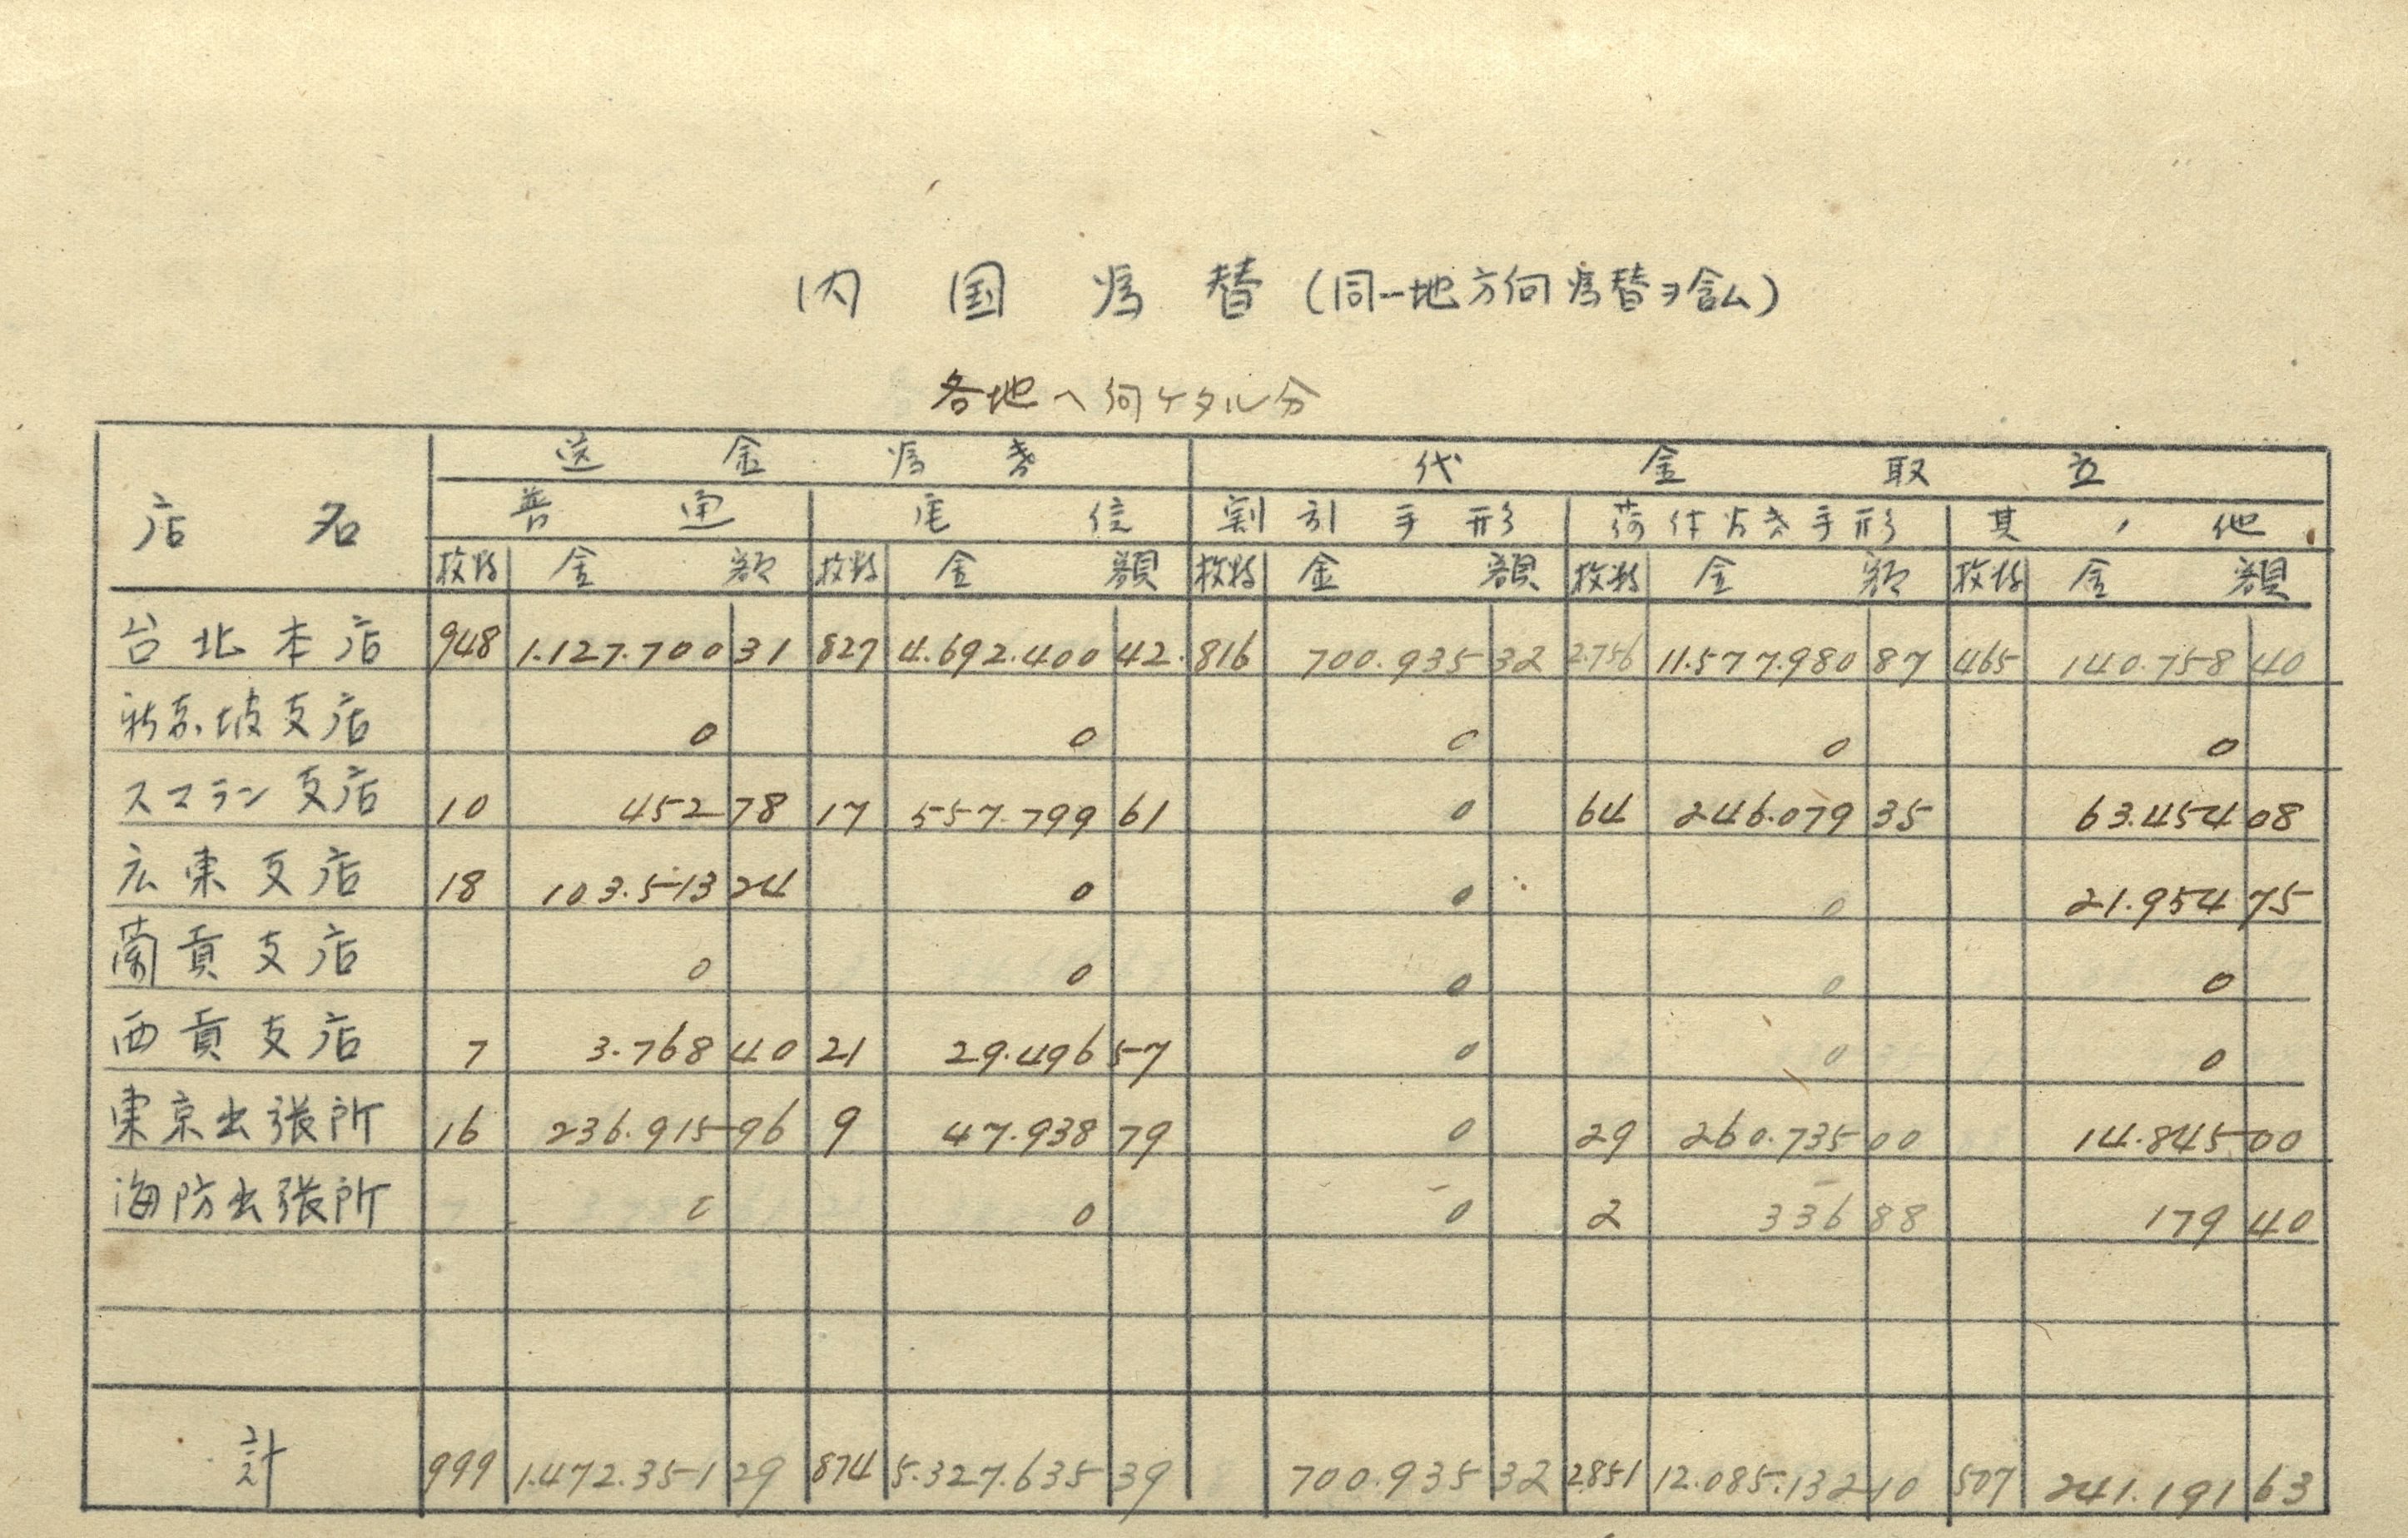 内国為替(同一地方向為替ヲ含ム)
各地ヘ向ケタル分
店名 送金為替 代金取立
普通 電信 割引手形 荷付為替手形 其ノ他
枚数 金額 枚数 金額 枚数 金額 枚数 金額 枚数 金額
台北本店 948 1.127.700 31 827 4.692.400 42. 816 700.935 32 2.756 11.577.980 87 465 140.758 40
新嘉坡支店 0 0 0 0 0
スマラン支店 10 452 78 17 557.799 61 0 64 246.079 35 63.454 08
広東支店 18 103.513 24 0 0 0 21.954 75
蘭貢支店 0 0 0 0 0
西貢支店 7 3.768 40 21 29.496 57 0 0 0
東京出張所 16 236.915 96 9 47.938 79 0 29 260.735 00 14.845 00
海防出張所 0 0 0 2 336 88 179 40
計 999 1.472.351 29 874 5.327.635 39 700.935 32 2851 12.085.132 10 507 241.191 63